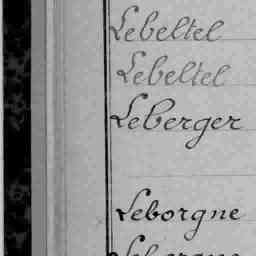 Lebeltel
Lebeltel
Leberger
Leborgne